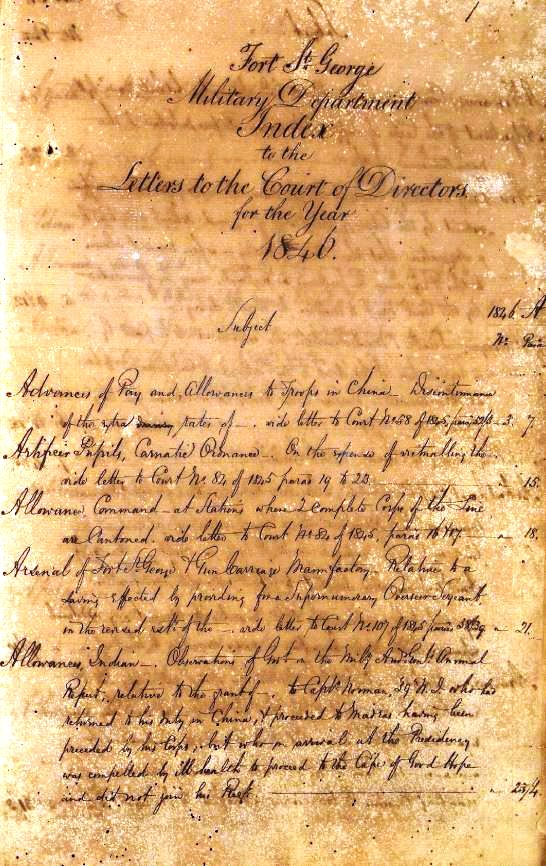 1
Fort St. George
Military Department
Index
to the
Letters to the Court of Directors
for the Year
1846.
Subject
1846 A
No. Para
Advances of Pay and Allowances to Troops in China - Discontinuance
of the extra rates of - vide letter to Court No. 58 of 1845, paras 3. 7.
Artificer Pupils, Carnatic Ordnance - On the expense of victualling the -
vide letter to Court No. 84 of 1845 paras 19 to 23. 15.
Allowance, Command - at Stations where 2 complete Corps of the Line
are Cantoned. vide letter to Court No. 84 of 1845, paras 16 & 17 - " 18.
Arsenal of Fort St. George & Gun Carriage Manufactory - Relative to a
saving effected by providing for a Supernumerary Overseer Sergeant
in the revised estt. of the - vide letter to Court No. 107 of 1845 paras 38 & 39 " 21.
Allowances, Indian - Observations of Govt. on the Mily. Audr. Genl's. Annual
Report, relative to the grant of - to Captn. Norman, N.I. who had
returned to his duty in China, & proceeded to Madras having been
preceded by his Corps, but who on arrival at the Presidency
was compelled by ill health to proceed to the Cape of Good Hope
and did not join his Regt. " 23/4.